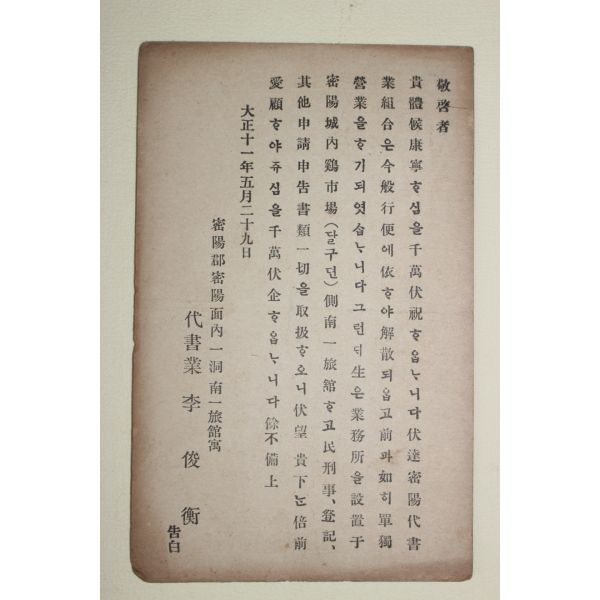 敬啓者
貴體候康寧ᄒᆞ심을千萬伏祝ᄒᆞ옵ᄂᆞ니다伏達密陽代書
業組合은今般行便에依ᄒᆞ야解散되옵고前과如히單獨
營業을ᄒᆞ기되엿습ᄂᆞ니다그런ᄃᆡ生은業務所을設置于
密陽城內鷄市場(달구뎐)側南一旅舘ᄒᆞ고民刑事、登記、
其他申請申告書類一切을取扱ᄒᆞ오니伏望 貴下ᄂᆞᆫ倍前
愛顧ᄒᆞ야쥬심을千萬伏企ᄒᆞ옵ᄂᆞ니다餘不備上
大正十一年五月二十九日
密陽郡密陽面內一洞南一旅舘寓
代書業 李俊衡 告白